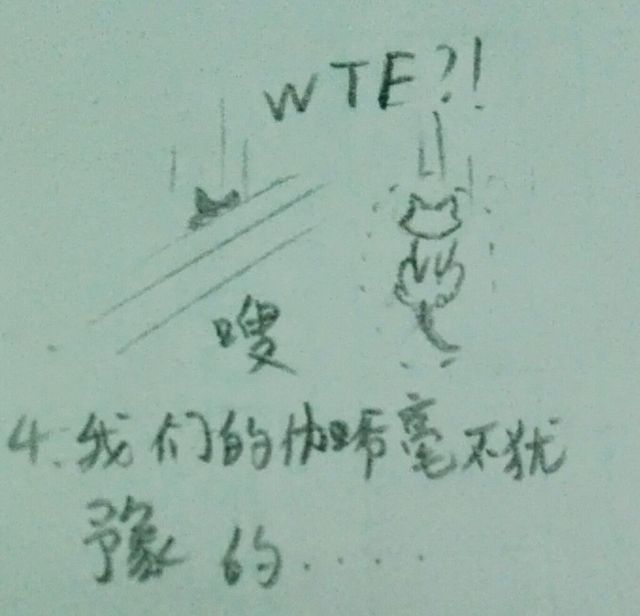 WTF?!
嗖
4.我们的伽蒂毫不犹
豫的.....